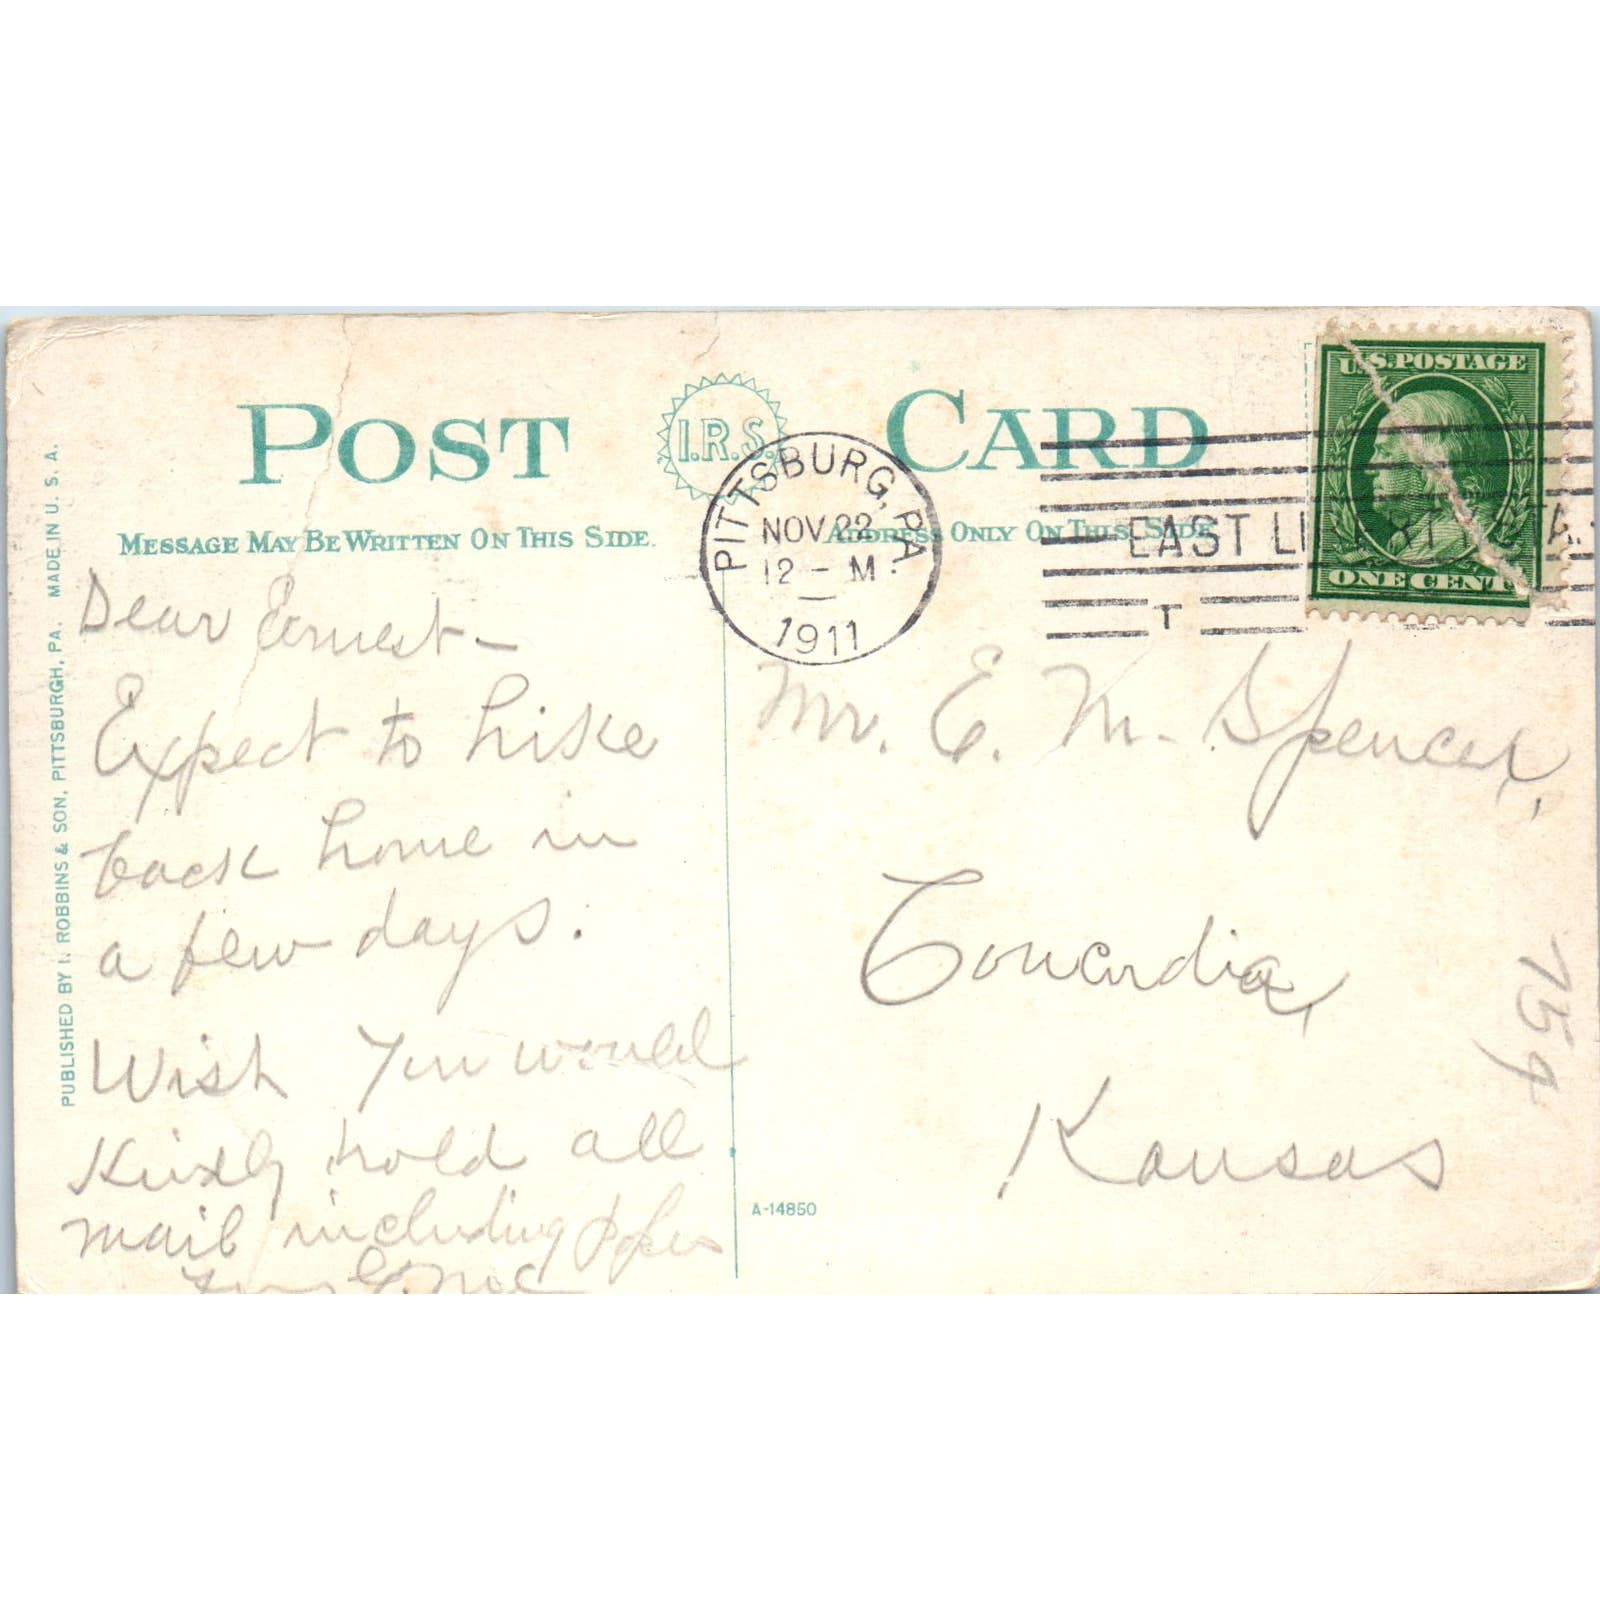 POST CARD
I.R.S.
MESSAGE MAY BE WRITTEN ON THIS SIDE.
ADDRESS ONLY ON THIS SIDE.
PITTSBURG, PA.
NOV 22
12 - M
1911
EAST LIBERTY STA.
T
U.S. POSTAGE
ONE CENT
PUBLISHED BY I. ROBBINS & SON, PITTSBURGH, PA. MADE IN U. S. A.
Dear Ernest -
Expect to hike
back home in
a few days.
Wish you would
Kindly hold all
mail including
Mr. E. M. Spencer,
Concordia,
Kansas
759
A-14850